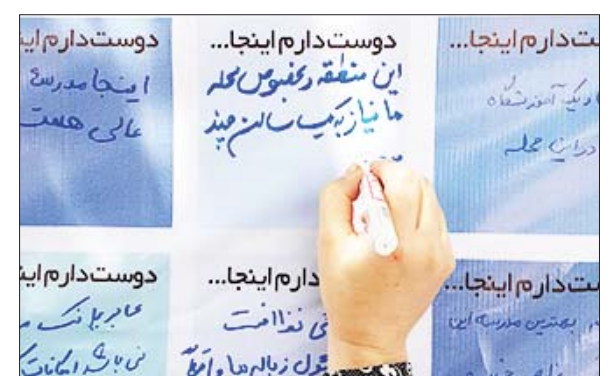 دوست‌دارم اینجا...
ایـنجا مدرسهٔ
عالی هست
دوست‌دارم اینجا...
این منطقه و بخصوص محله
ما نیاز به یک سالن چند
ـت‌دارم اینجا...
یک آموزشگاه
در این محله
دوست‌دارم اینـ
عابر بانک
نمی باشد امکانات
دارم اینجا...
نظافت
زباله ها و
ـت‌دارم اینجا...
بهترین مدرسه این